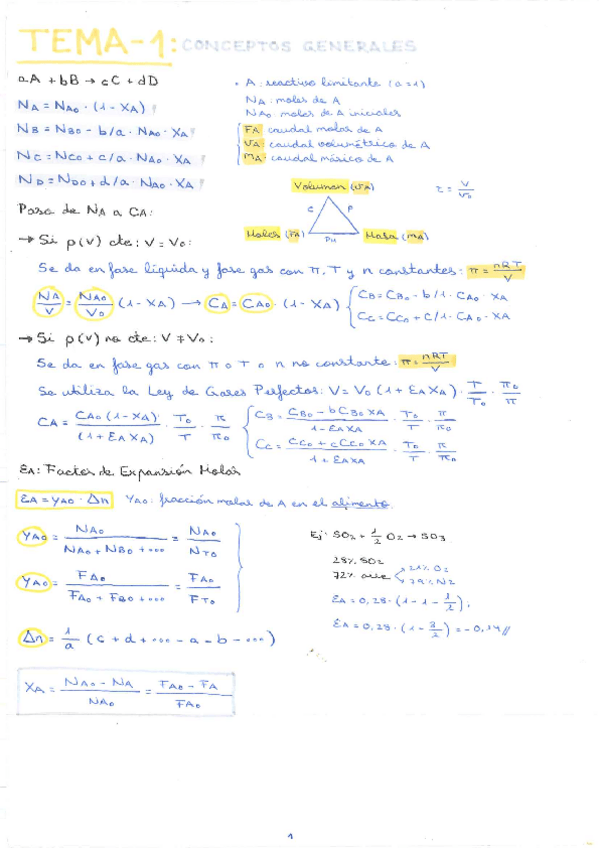 TEMA-1: CONCEPTOS GENERALES
aA + bB → cC + dD
• A: reactivo limitante (a=1)
NA: moles de A
NA0: moles de A iniciales
NA = NA0 · (1 - XA)
NB = NB0 - b/a · NA0 · XA
NC = NC0 + c/a · NA0 · XA
ND = ND0 + d/a · NA0 · XA
FA: caudal molar de A
VA: caudal volumétrico de A
mA: caudal másico de A
Volumen (VA)
C
ρ
Moles (FA)
PM
Masa (mA)
τ = V/V0
Paso de NA a CA:
→ Si ρ(V) cte: V = V0:
Se da en fase líquida y fase gas con π, T y n constantes: π = nRT/V
NA/V = NA0/V0 (1 - XA) → CA = CA0 · (1 - XA)
CB = CB0 - b/1 · CA0 · XA
CC = CC0 + C/1 · CA0 · XA
→ Si ρ(V) no cte: V ≠ V0:
Se da en fase gas con π o T o n no constante: π = nRT/V
Se utiliza la Ley de Gases Perfectos: V = V0 (1 + εA XA) · T/T0 · π0/π
CA = CA0 (1 - XA)/(1 + εA XA) · T0/T · π/π0
CB = CB0 - bCB0 XA/1 - εA XA · T0/T · π/π0
CC = CC0 + cCC0 XA/1 + εA XA · T0/T · π/π0
εA: Factor de Expansión Molar
εA = YA0 · Δn
YA0: fracción molar de A en el alimento.
YA0 = NA0/NA0 + NB0 + ... = NA0/NT0
YA0 = FA0/FA0 + FB0 + ... = FA0/FT0
Δn = 1/a (c + d + ... - a - b - ...)
Ej: SO2 + 1/2 O2 → SO3
28% SO2
72% aire
21% O2
79% N2
εA = 0,28 · (1 - 1 - 1/2);
εA = 0,28 · (1 - 3/2) = -0,14//
XA = NA0 - NA/NA0 = FA0 - FA/FA0
1